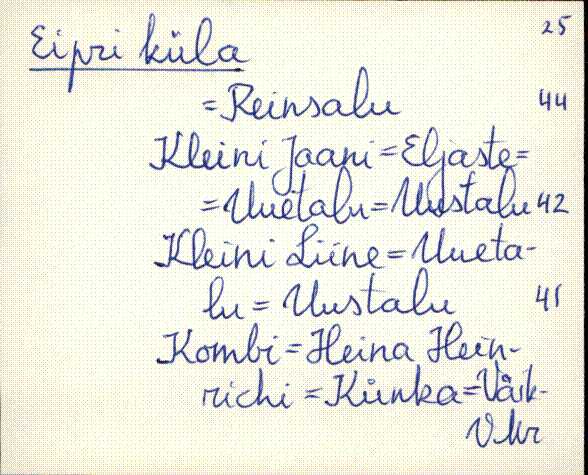 25
Eipri küla
= Reinsalu 44
Kleini Jaani = Eljaste =
= Uuetalu = Uustalu 42
Kleini Liine = Uueta-
lu = Uustalu 41
Kombi = Heina Hein-
richi = Künka = Väik-
V. kr